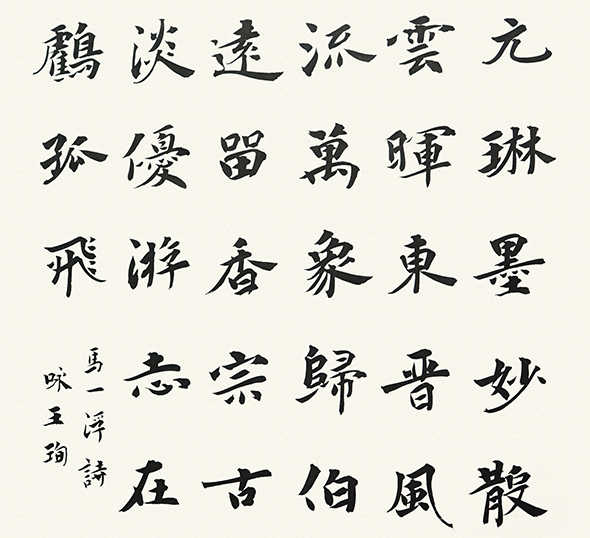 元琳墨妙散
雲暉東晉風
流萬象歸伯
遠留香宗古
淡優游志在
鶴孤飛
馬一浮詩
咏王珣